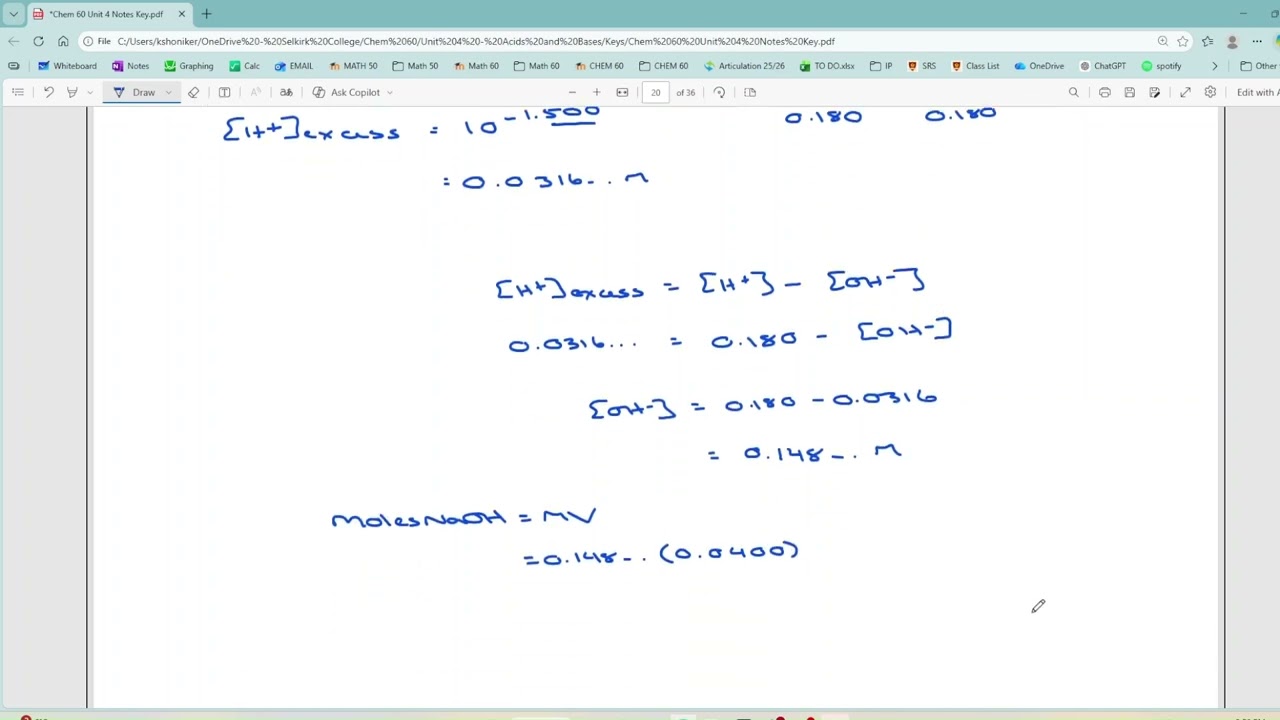 *Chem 60 Unit 4 Notes Key.pdf
File C:/Users/kshoniker/OneDrive%20-%20Selkirk%20College/Chem%2060/Unit%204%20-%20Acids%20and%20Bases/Keys/Chem%2060%20Unit%204%20Notes%20Key.pdf
Whiteboard Notes Graphing Calc EMAIL MATH 50 Math 50 Math 60 Math 60 CHEM 60 CHEM 60 Articulation 25/26 TO DO.xlsx IP SRS Class List OneDrive ChatGPT spotify Other
Draw Ask Copilot 20 of 36 Edit with A
[H+]excess = 10^-1.500 0.180 0.180
= 0.0316... M
[H+]excess = [H+] - [OH-]
0.0316... = 0.180 - [OH-]
[OH-] = 0.180 - 0.0316
= 0.148... M
Moles NaOH = MV
= 0.148... (0.0400)